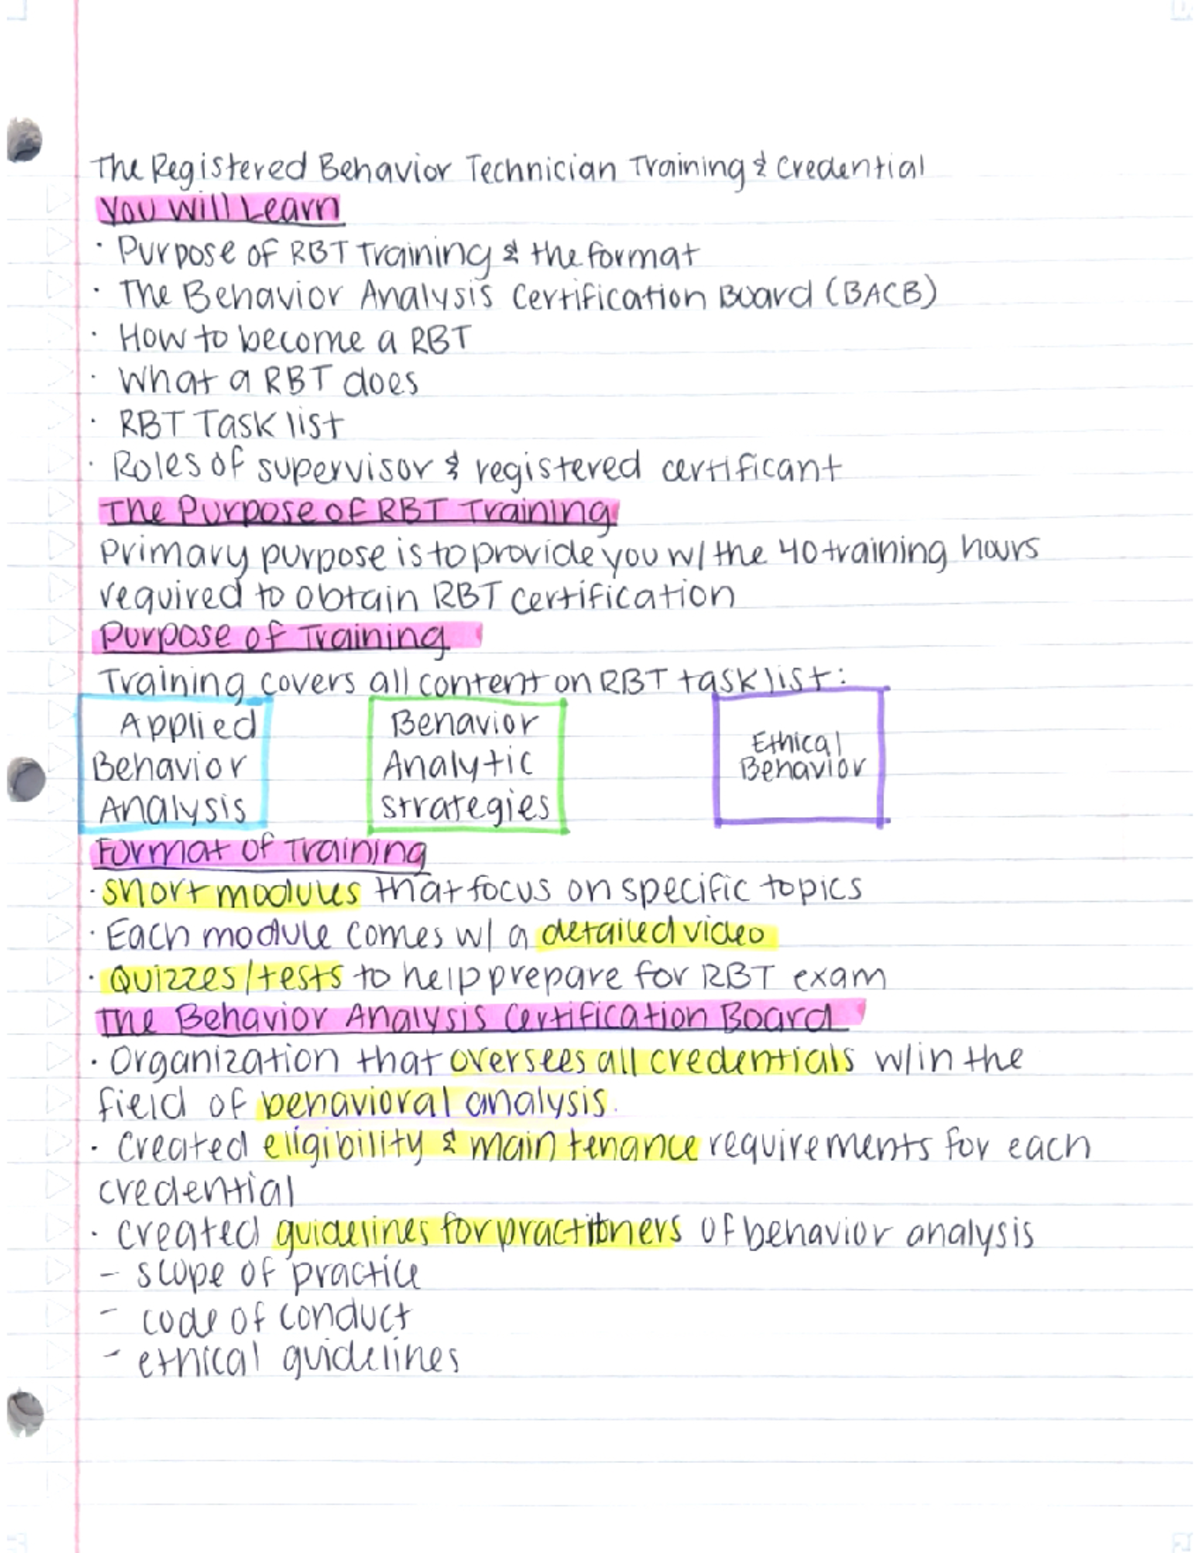 The Registered Behavior Technician Training & Credential
You Will Learn
· Purpose of RBT Training & the format
· The Behavior Analysis Certification Board (BACB)
· How to become a RBT
· What a RBT does
· RBT Task list
· Roles of supervisor & registered certificant
The Purpose of RBT Training
Primary purpose is to provide you w/ the 40 training hours
required to obtain RBT certification
Purpose of Training
Training covers all content on RBT task list:
Applied
Behavior
Analysis
Behavior
Analytic
strategies
Ethical
Behavior
Format of Training
· short modules that focus on specific topics
· Each module comes w/ a detailed video
· Quizzes/tests to help prepare for RBT exam
The Behavior Analysis Certification Board
· Organization that oversees all credentials w/in the
field of behavioral analysis.
· Created eligibility & maintenance requirements for each
credential
· created guidelines for practitioners of behavior analysis
- scope of practice
- code of conduct
- ethical guidelines